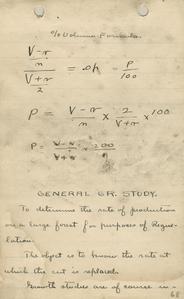 % Volume Formula.
V-v
n
V+v
2
= .0p = P
100
P = V-v
n x 2
V+v x 100
P = V-v
V+v x 200
n
GENERAL GR. STUDY.
To determine the rate of production
on a large forest for purposes of Regu-
lation.
The object is to know the rate at
which the cut is replaced.
Growth studies are of course in-
68